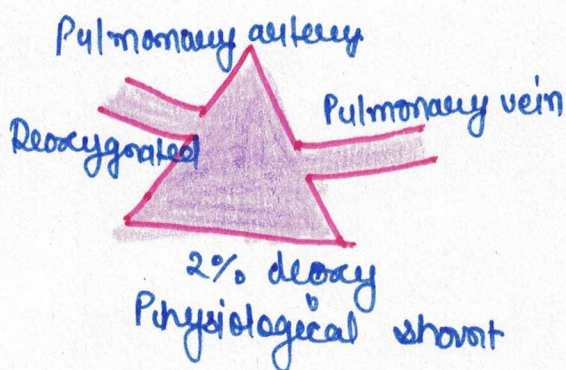 Pulmonary artery
Pulmonary vein
Deoxygnated
2% deoxy
Physiological shount